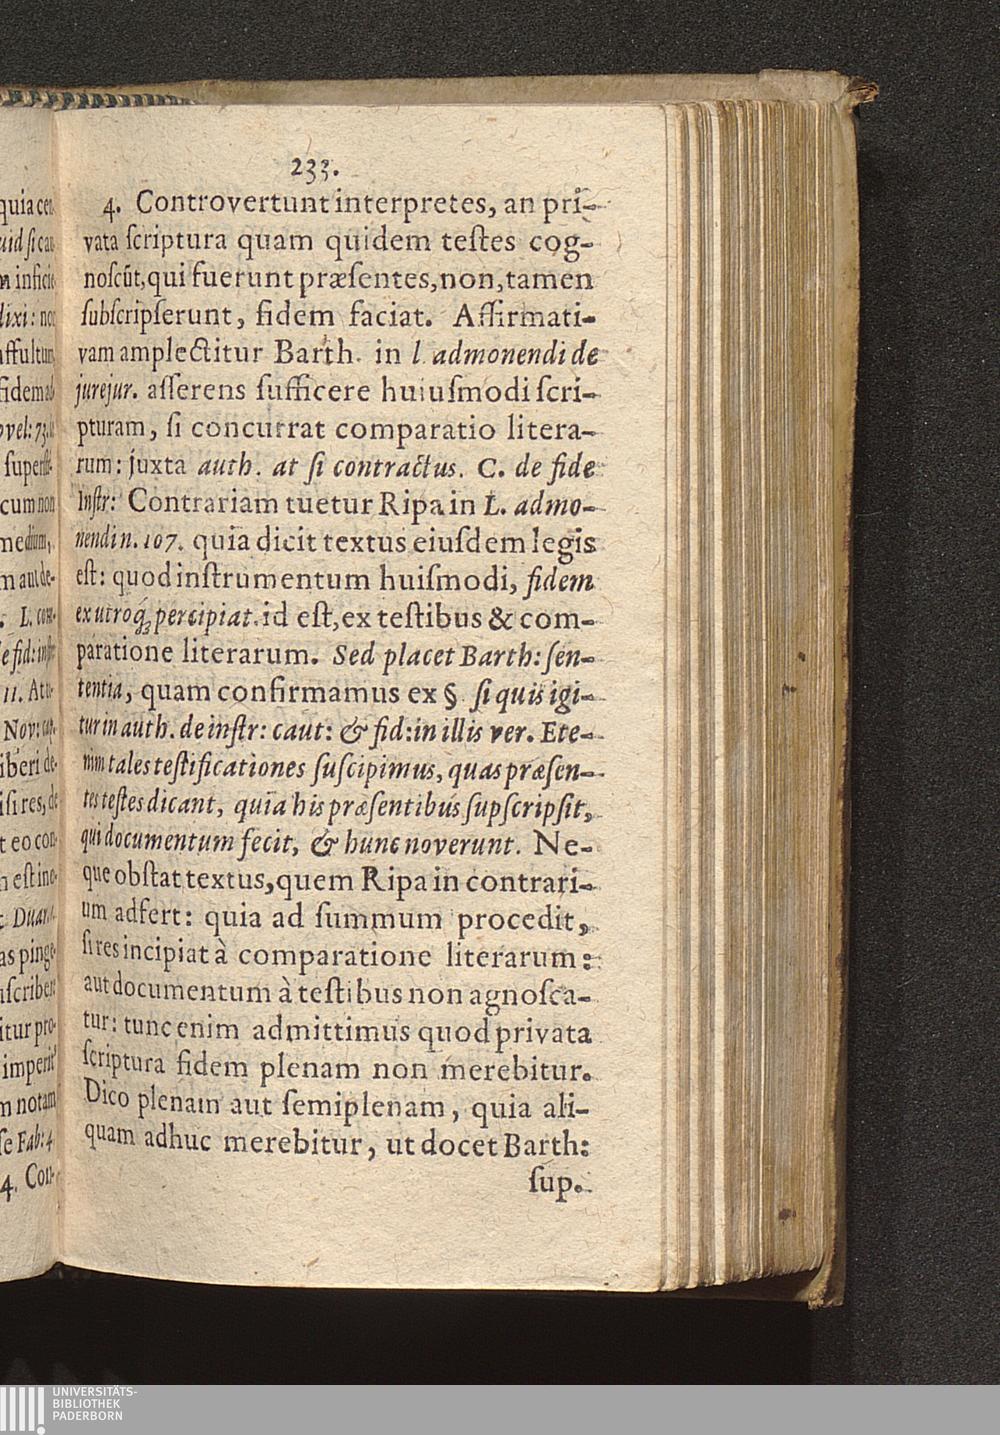 233.
4. Controvertunt interpretes, an pri-
vata ſcriptura quam quidem teſtes cog-
noſcūt, qui fuerunt præſentes, non, tamen
ſubſcripſerunt, fidem faciat. Aſſirmati-
vam amplectitur Barth. in l. admonendi de
jurejur. aſſerens ſufficere huiuſmodi ſcri-
pturam, ſi concurrat comparatio litera-
rum: juxta auth. at ſi contractus. C. de fide
Inſtr: Contrariam tuetur Ripa in L. admo-
nendi n. 107. quia dicit textus eiuſdem legis
eſt: quod inſtrumentum huiſmodi, fidem
ex utroq; percipiat. id eſt, ex teſtibus & com-
paratione literarum. Sed placet Barth: ſen-
tentia, quam confirmamus ex § ſi quis igi-
tur in auth. de inſtr: caut: & fid: in illis ver. Ete-
nim tales teſtificationes ſuſcipimus, quas præſen-
tes teſtes dicant, quia his præſentibus ſupſcripſit,
qui documentum fecit, & hunc noverunt. Ne-
que obſtat textus, quem Ripa in contrari-
um adfert: quia ad ſummum procedit,
ſi res incipiat à comparatione literarum:
aut documentum à teſtibus non agnoſca-
tur: tunc enim admittimus quod privata
ſcriptura fidem plenam non merebitur.
Dico plenam aut ſemiplenam, quia ali-
quam adhuc merebitur, ut docet Barth:
ſup.
quia cen
inficie
dixi: no
ſuperſt-
cum non
medium,
m aut de-
. L. con-
11. Att-
Nov: cap.
iberi de-
iſi res, de
t eo con-
n eſt ino-
: Duar.
as pinge-
uſcriber
itur pro-
imperit
m notam
ſe Fab: 4
4. Con-
UNIVERSITÄTS-
BIBLIOTHEK
PADERBORN